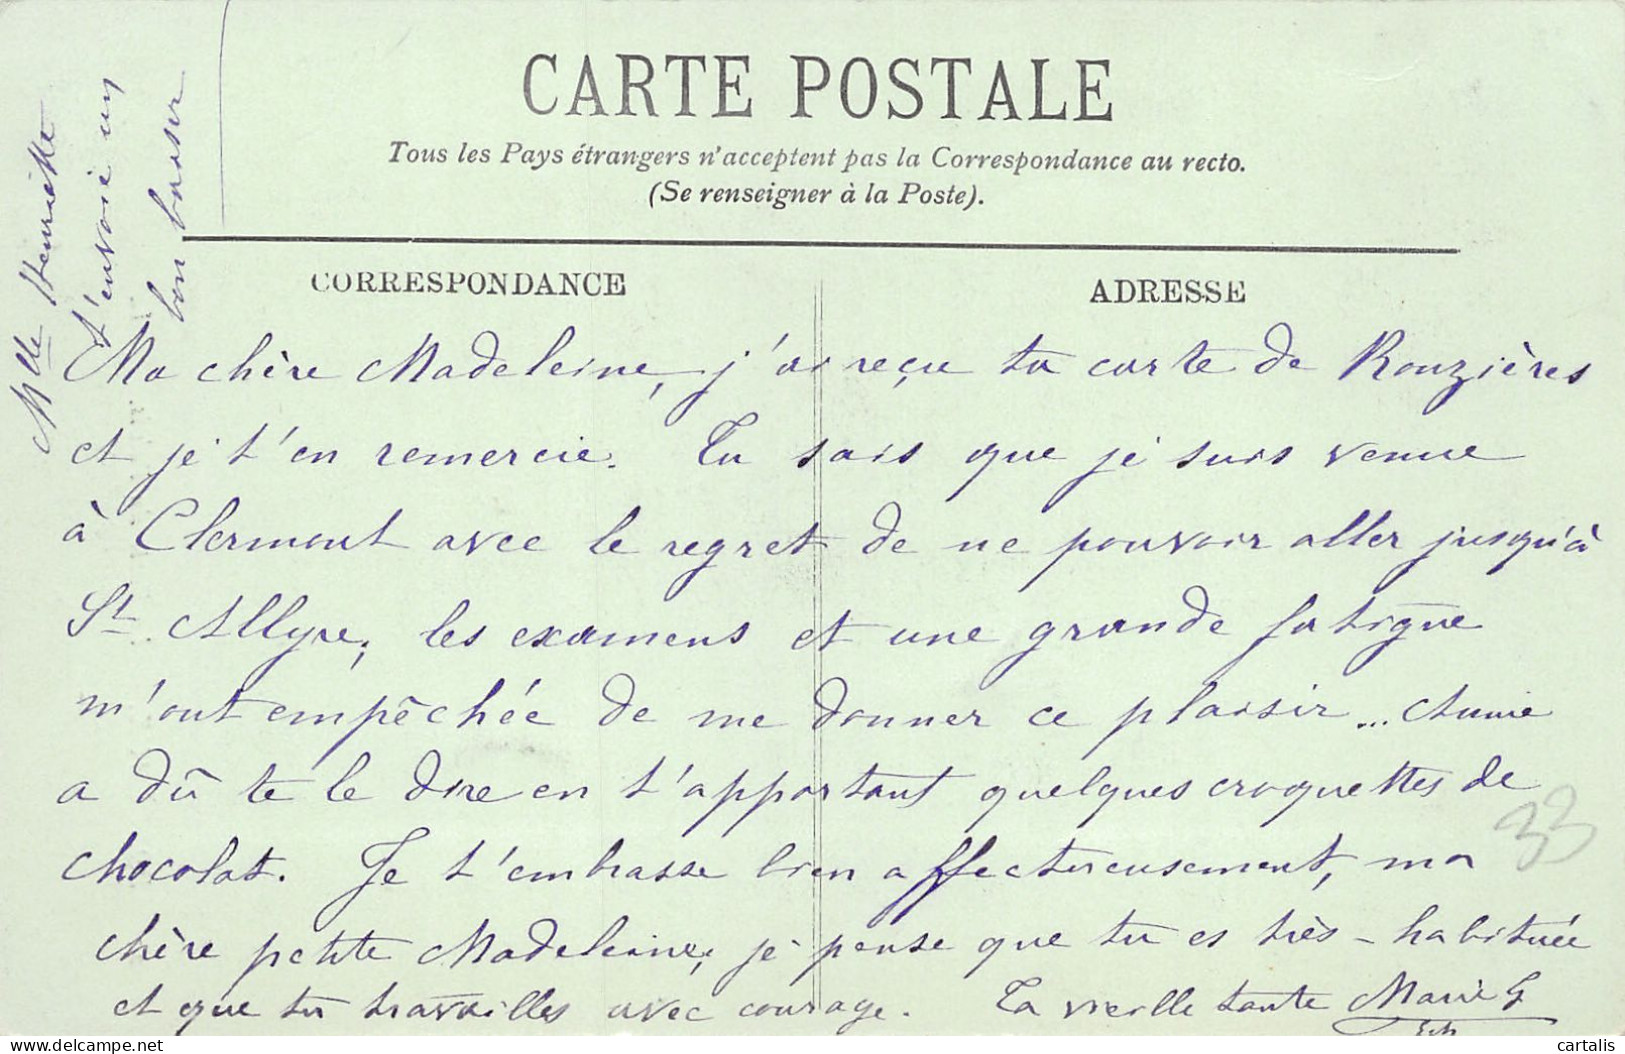 CARTE POSTALE
Tous les Pays étrangers n'acceptent pas la Correspondance au recto.
(Se renseigner à la Poste).
CORRESPONDANCE
ADRESSE
Ma chère Madeleine, j'ai reçu ta carte de Rouzières
et je t'en remercie. Tu sais que je suis venue
à Clermont avec le regret de ne pouvoir aller jusqu'à
St. Allyre, les examens et une grande fatigue
m'ont empêchée de me donner ce plaisir... Annie
a dû te le dire en t'apportant quelques croquettes de
chocolat. Je t'embrasse bien affectueusement, ma
chère petite Madeleine, je pense que tu es très-habituée
et que tu travailles avec courage. Ta vieille tante Marie G
Mlle Henriette
t'envoie un
bon baiser
33
cartalis